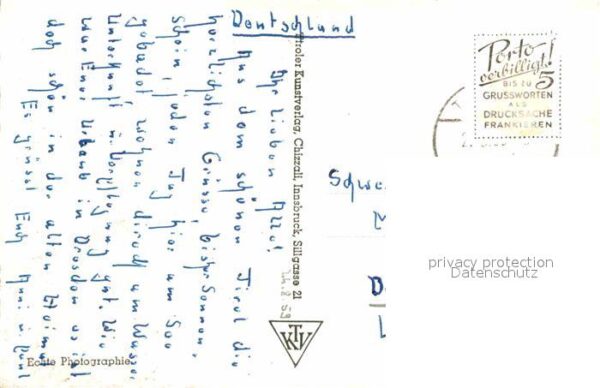 Deutschland
Ihr Lieben Alle!
Aus dem schönen Tirol die
herzlichsten Grüsse, bisher Sonnen-
schein, jeden Tag hier am See
gebadet, wohnen direkt am Wasser
Unterkunft u. Verpflegung gut. Wie
war Euer Urlaub in Dresden es ist
doch schön in der alten Heimat
Es grüsst Euch Anni u.
24.8.59
Tiroler Kunstverlag, Chizzali, Innsbruck, Sillgasse 21
KTV
Echte Photographie
Porto
verbilligt!
BIS ZU 5
GRUSSWORTEN
ALS
DRUCKSACHE
FRANKIEREN
Schwe
D
privacy protection
Datenschutz